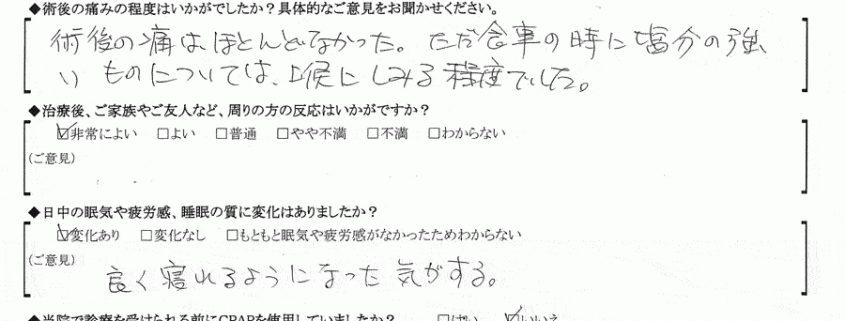 ◆術後の痛みの程度はいかがでしたか？具体的なご意見をお聞かせください。
術後の痛はほとんどなかった。ただ食事の時に塩分の強
いものについては、喉にしみる程度でした。
◆治療後、ご家族やご友人など、周りの方の反応はいかがですか？
☑非常によい □よい □普通 □やや不満 □不満 □わからない
(ご意見)
◆日中の眠気や疲労感、睡眠の質に変化はありましたか？
☑変化あり □変化なし □もともと眠気や疲労感がなかったためわからない
(ご意見)
良く寝れるようになった気がする。
◆当院で診療を受けられる前にCPAPを使用していましたか？ □はい ☑いいえ